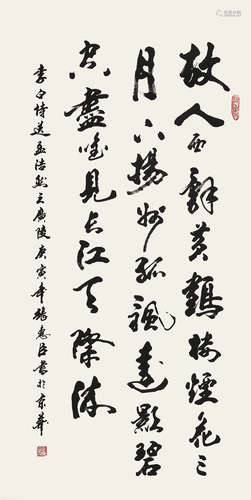 故人西辭黃鶴樓煙花三
月下揚州孤帆遠影碧
空盡唯見長江天際流
李白詩送孟浩然之廣陵庚寅年張惠臣書於京華